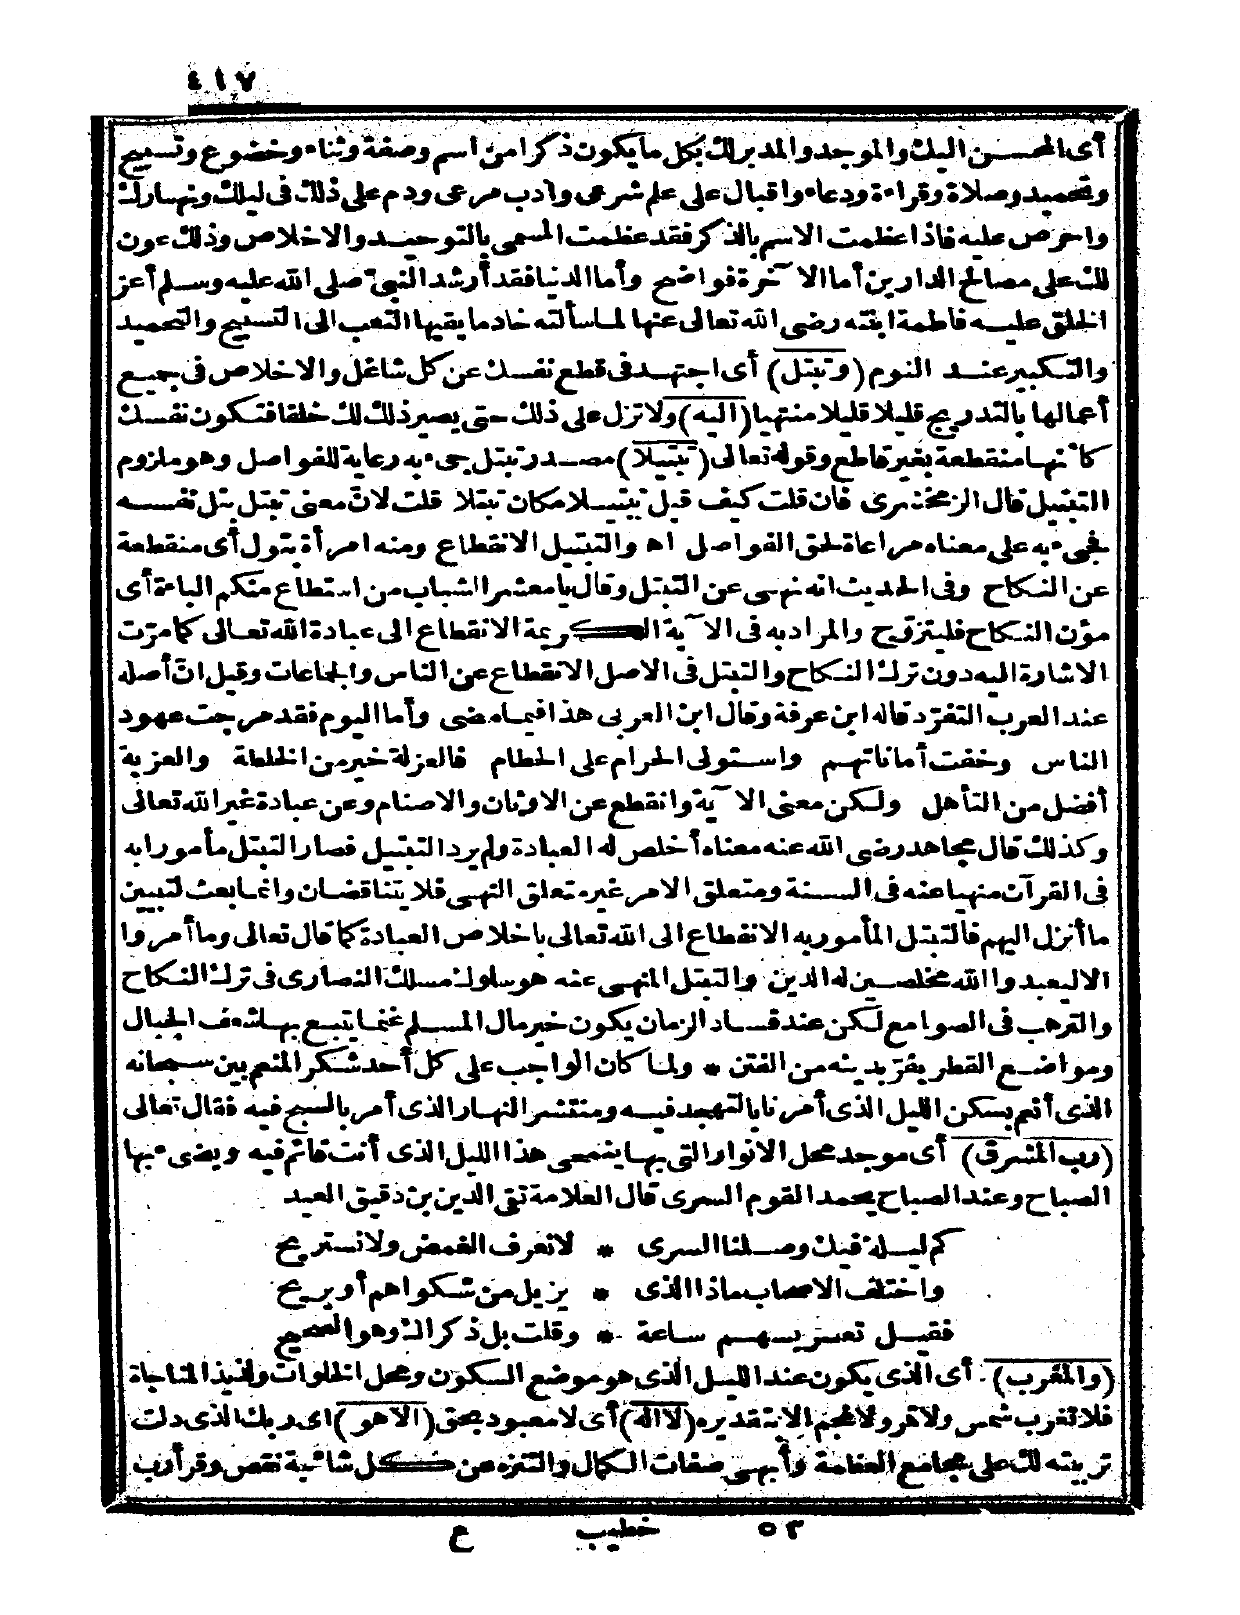 ٤١٧
أى المحسن اليك والموجد والمدبر لك بكل ما يكون ذكرا من اسم وصفة وثناء وخضوع وتسبيح
وتحميد وصلاة وقراءة ودعاء واقبال على علم شرعى وأدب مرعى ودم على ذلك فى ليلك ونهارك
واحرص عليه فاذا عظمت الاسم بالذكر فقد عظمت المسمى بالتوحيد والاخلاص وذلك عون
لك على مصالح الدارين أما الآخرة فواضح وأما الدنيا فقد أرشد النبىّ صلى الله عليه وسلم أعز
الخلق عليه فاطمة ابنته رضى الله تعالى عنها لما سألته خادما يقيها التعب الى التسبيح والتحميد
والتكبير عند النوم (وتبتل) أى اجتهد فى قطع نفسك عن كل شاغل والاخلاص فى جميع
أعمالها بالتدريج قليلا قليلا منتهيا (اليه) ولا تزل على ذلك حتى يصير ذلك لك خلقا فتكون نفسك
كأنها منقطعة بغير قاطع وقوله تعالى (تبتيلا) مصدر تبتل جىء به رعاية للفواصل وهو ملزوم
التبتيل قال الزمخشرى فان قلت كيف قيل تبتيلا مكان تبتلا قلت لانّ معنى تبتل بتل نفسه
فجىء به على معناه مراعاة لحق الفواصل اه والتبتيل الانقطاع ومنه امرأة بتول أى منقطعة
عن النكاح وفى الحديث انه نهى عن التبتل وقال يا معشر الشباب من استطاع منكم الباءة أى
مؤن النكاح فليتزوّج والمراد به فى الآية الكريمة الانقطاع الى عبادة الله تعالى كما مرّت
الاشارة اليه دون ترك النكاح والتبتل فى الاصل الانقطاع عن الناس والجماعات وقيل انّ أصله
عند العرب التفرّد قاله ابن عرفة وقال ابن العربى هذا فيما مضى وأما اليوم فقد مرجت عهود
الناس وخفت أماناتهم واستولى الحرام على الحطام فالعزلة خير من الخلطة والعزبة
أفضل من التأهل ولكن معنى الآية وانقطع عن الاوثان والاصنام وعن عبادة غير الله تعالى
وكذلك قال مجاهد رضى الله عنه معناه أخلص له العبادة ولم يرد التبتيل فصار التبتل مأمورا به
فى القرآن منهيا عنه فى السنة ومتعلق الامر غير متعلق النهى فلا يتناقضان وانما بعث لتبيين
ما أنزل اليهم فالتبتل المأمور به الانقطاع الى الله تعالى باخلاص العبادة كما قال تعالى وما أمروا
الا ليعبدوا الله مخلصين له الدين والتبتل المنهى عنه هو سلوك مسلك النصارى فى ترك النكاح
والترهب فى الصوامع لكن عند فساد الزمان يكون خير مال المسلم غنما يتبع بها شعف الجبال
ومواضع القطر يفرّ بدينه من الفتن * ولما كان الواجب على كل أحد شكر المنعم بين سبحانه
الذى أنعم بسكن الليل الذى أمرنا بالتهجد فيه ومنتشر النهار الذى أمر بالسبح فيه فقال تعالى
(رب المشرق) أى موجد محل الانوار التى بها ينمحى هذا الليل الذى أنت قائم فيه ويضىء بها
الصباح وعند الصباح يحمد القوم السرى قال العلامة تقى الدين بن دقيق العيد
كم ليلة فيك وصلنا السرى * لا نعرف الغمض ولا نستريح
واختلف الاصحاب ماذا الذى * يزيل من شكواهم أو يريح
فقيل تعريسهم ساعة * وقلت بل ذكراك وهو الصحيح
(والمغرب) أى الذى يكون عند الليل الذى هو موضع السكون ومحل الخلوات ولذيذ المناجاة
فلا تغرب شمس ولا قمر ولا نجم الا بتقديره (لا اله) أى لا معبود بحق (الا هو) اى ربك الذى دلت
تربيته لك على مجامع العظمة وأبهى صفات الكمال والتنزه عن كل شائبة نقص وقرأ رب
٥٣ خطيب ع